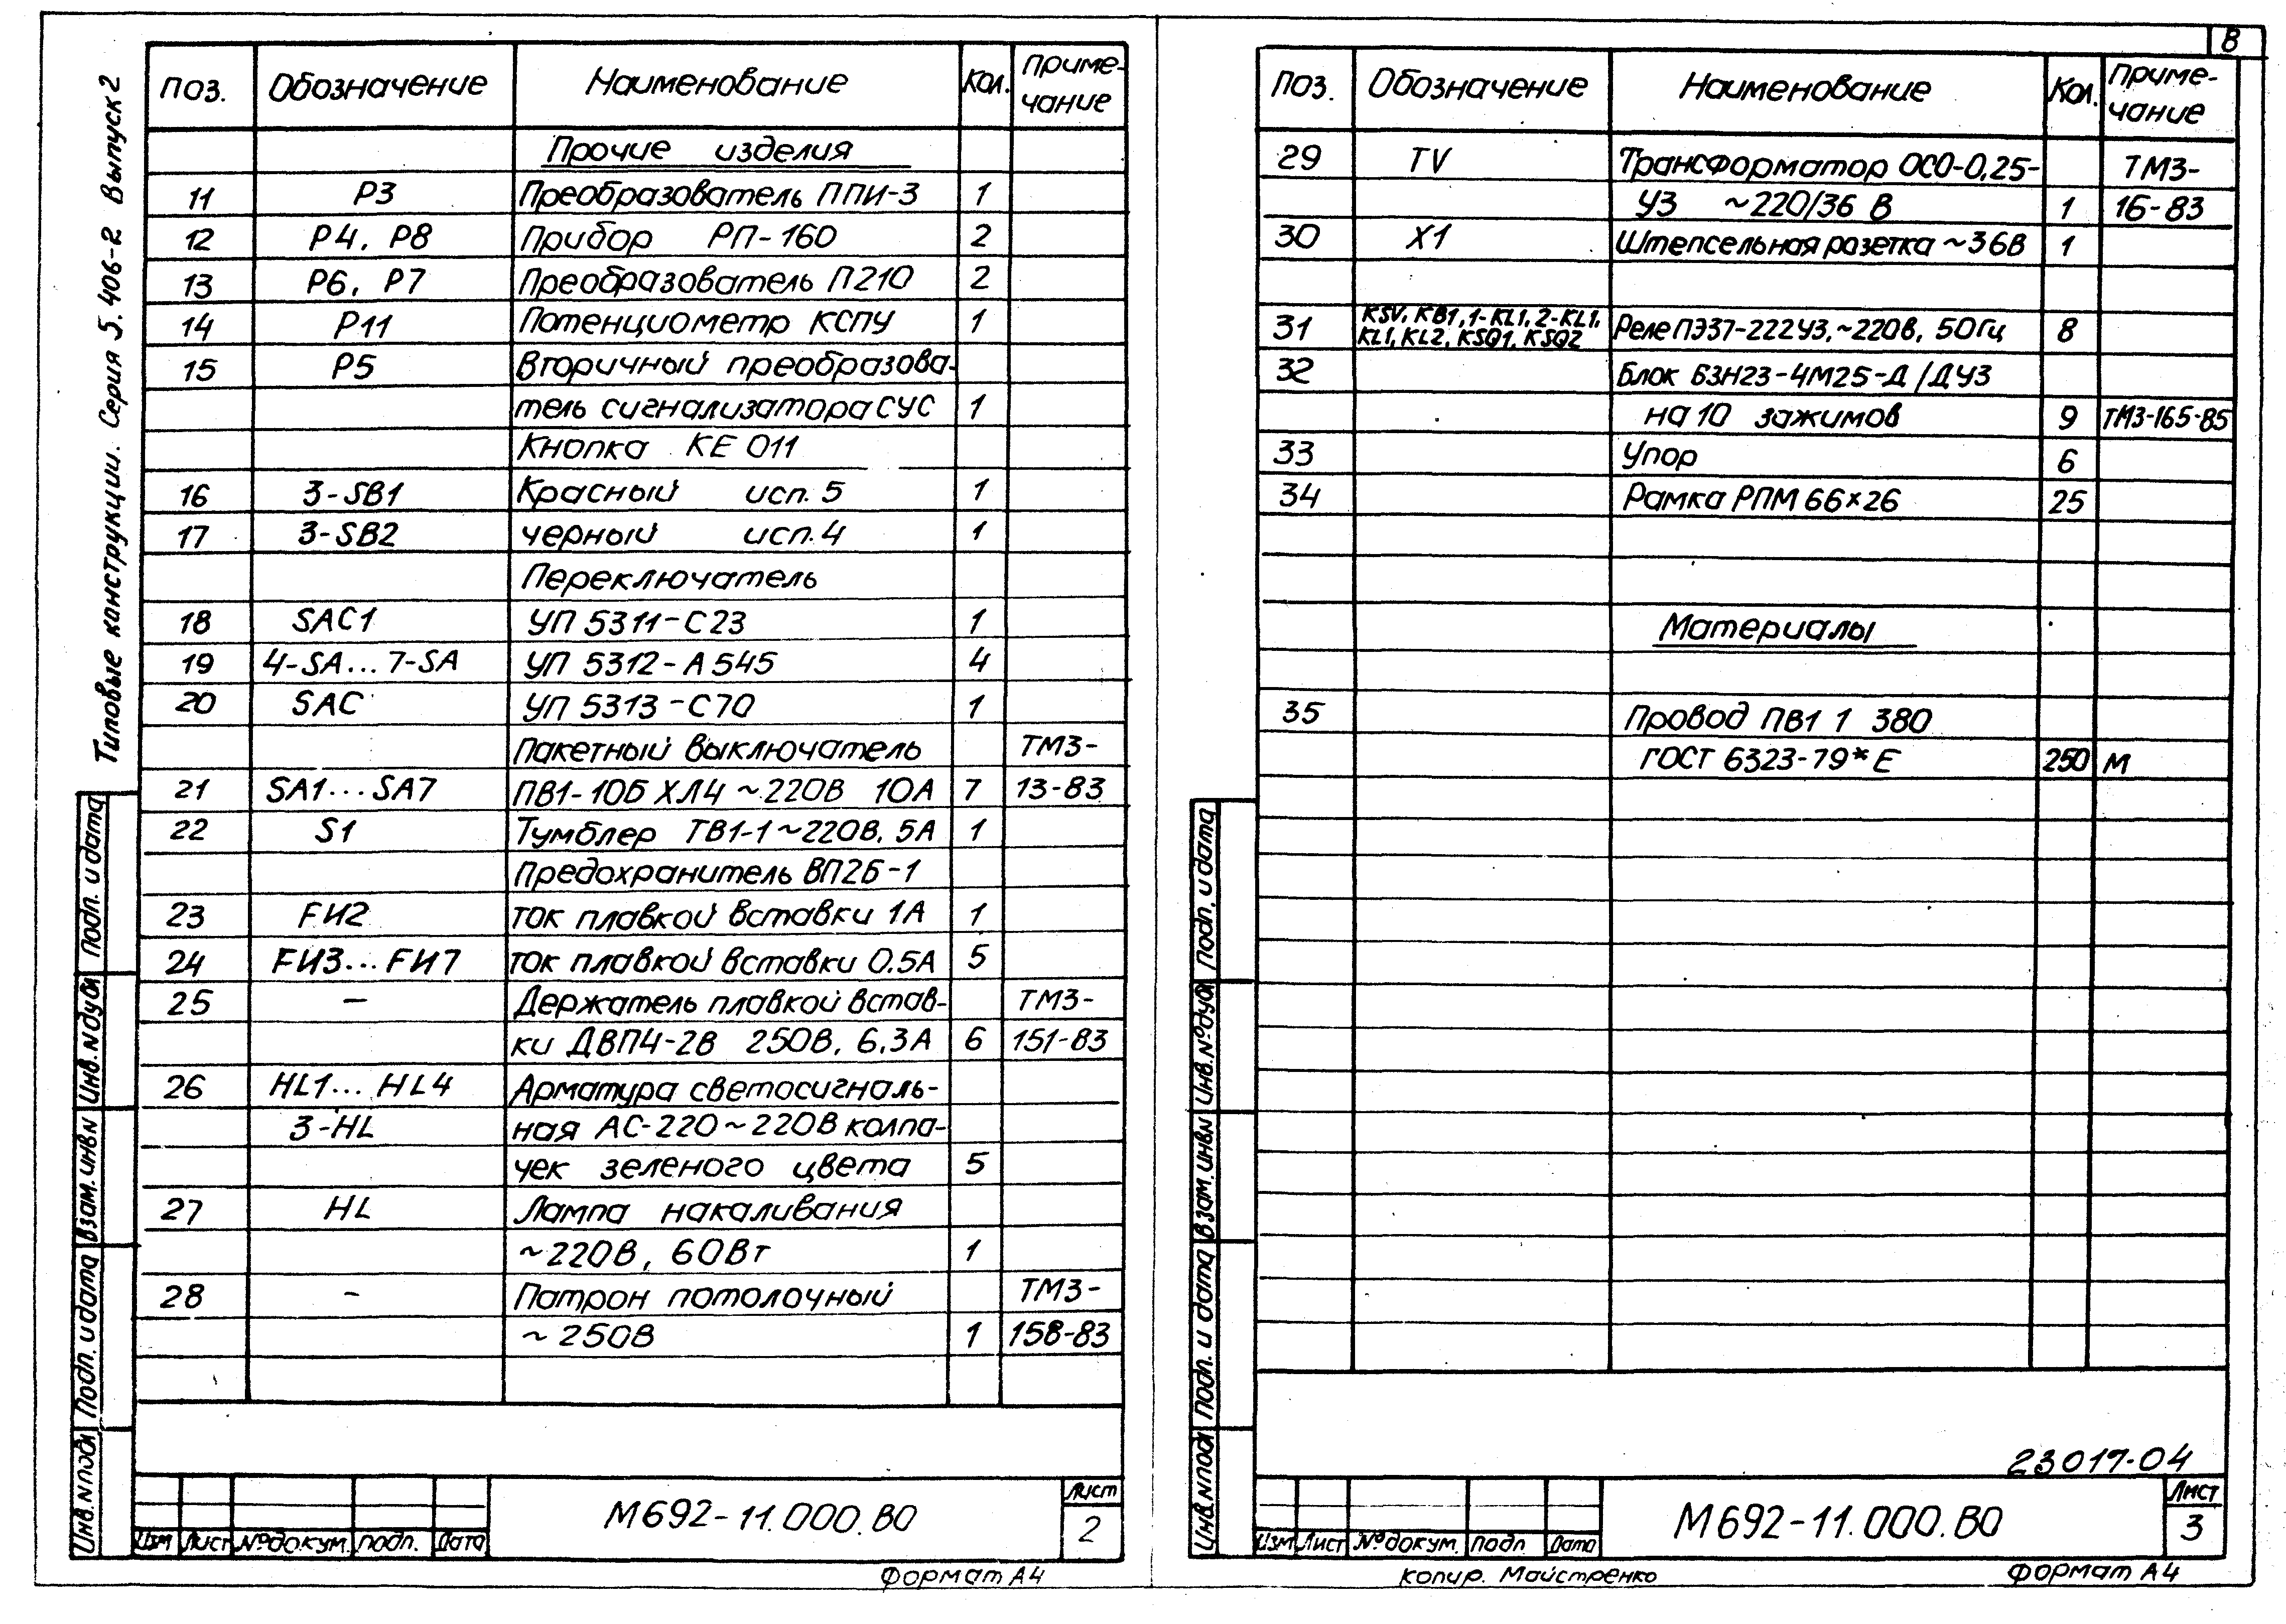 Типовые конструкции. Серия 5.406-2 Выпуск 2
Поз. Обозначение Наименование Кол. Приме-
чание
Прочие изделия
11 Р3 Преобразователь ППИ-3 1
12 Р4, Р8 Прибор РП-160 2
13 Р6, Р7 Преобразователь П210 2
14 Р11 Потенциометр КСПУ 1
15 Р5 Вторичный преобразова-
тель сигнализатора СУС 1
Кнопка КЕ 011
16 3-SB1 Красный исп. 5 1
17 3-SB2 черный исп. 4 1
Переключатель
18 SAC1 УП 5311-С23 1
19 4-SA...7-SA УП 5312-А545 4
20 SAC УП 5313-С70 1
Пакетный выключатель ТМ3-
21 SA1...SA7 ПВ1-10Б ХЛ4 ~220В 10А 7 13-83
22 S1 Тумблер ТВ1-1 ~220В, 5А 1
Предохранитель ВП2Б-1
23 FИ2 ток плавкой вставки 1А 1
24 FИ3...FИ7 ток плавкой вставки 0.5А 5
25 — Держатель плавкой встав- ТМ3-
ки ДВП4-2В 250В, 6,3А 6 151-83
26 HL1...HL4 Арматура светосигналь-
3-HL ная АС-220 ~220В колпа-
чек зеленого цвета 5
27 HL Лампа накаливания
~220В, 60Вт 1
28 - Патрон потолочный ТМ3-
~250В 1 158-83
Подп. и дата
Инв. N дубл
Взам. инв N
Подп. и дата
Инв. N подл
Изм Лист №докум. подп. Дата
М692-11.000.ВО
Лист
2
Формат А4
8
Поз. Обозначение Наименование Кол. Приме-
чание
29 TV Трансформатор ОСО-0,25- ТМ3-
У3 ~220/36 В 1 16-83
30 Х1 Штепсельная розетка ~36В 1
KSV, KB1, 1-KL1, 2-KL1,
31 KL1, KL2, KSQ1, KSQ2 Реле ПЭ37-222У3, ~220в, 50Гц 8
32 Блок БЗН23-4М25-Д/ДУ3
на 10 зажимов 9 ТМ3-165-85
33 Упор 6
34 Рамка РПМ 66×26 25
Материалы
35 Провод ПВ1 1 380
ГОСТ 6323-79* Е 250 м
Подп. и дата
Инв. №дубл
Взам. инв N
Подп. и дата
Инв. N подл
23017-04
Изм Лист №докум. подп Дата
М692-11.000.ВО
Лист
3
копир. Майстренко
Формат А4